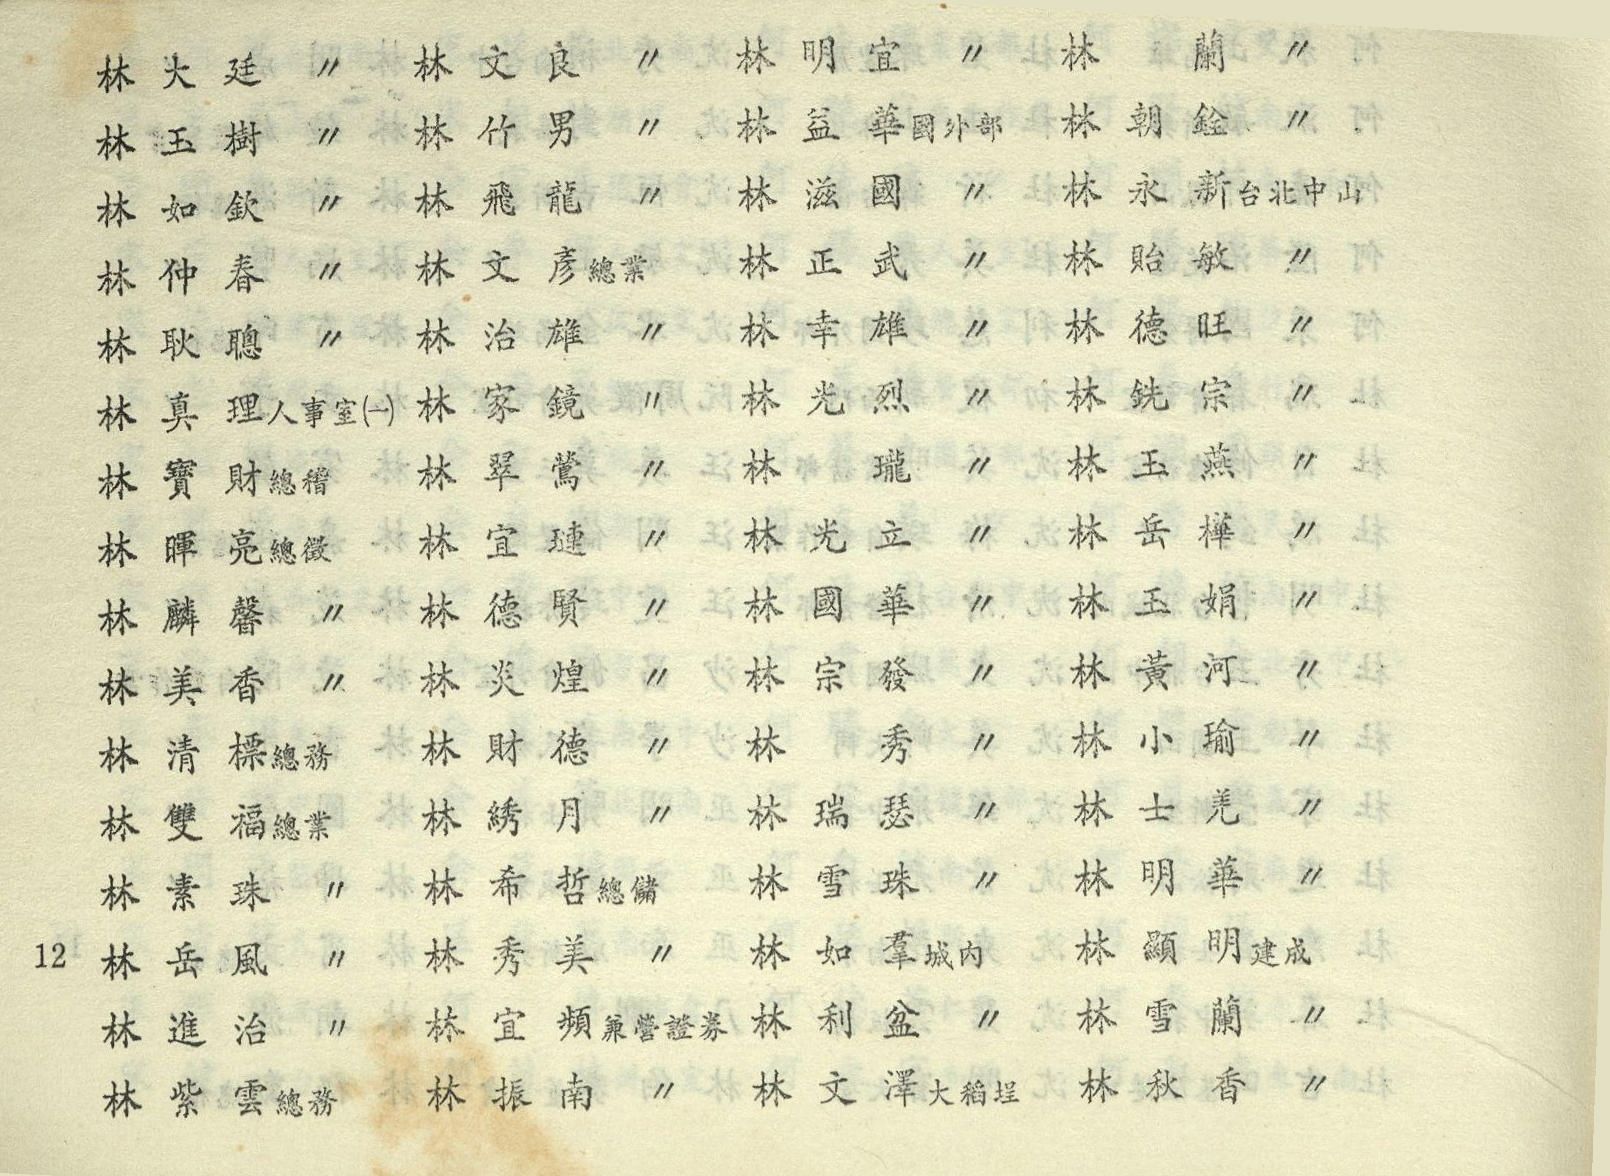 林大廷 〃 林文良 〃 林明宜 〃 林蘭 〃
林玉樹 〃 林竹男 〃 林益華 國外部 林朝銓 〃
林如欽 〃 林飛龍 〃 林滋國 〃 林永新 台北中山
林仲春 〃 林文彥 總業 林正武 〃 林貽敏 〃
林耿聰 〃 林治雄 〃 林幸雄 〃 林德旺 〃
林真理 人事室(一) 林家鏡 〃 林光烈 〃 林銑宗 〃
林寶財 總稽 林翠鶯 〃 林瓏 〃 林玉燕 〃
林暉亮 總徵 林宜璉 〃 林光立 〃 林岳樺 〃
林麟馨 〃 林德賢 〃 林國華 〃 林玉娟 〃
林美香 〃 林炎煌 〃 林宗發 〃 林黃河 〃
林清標 總務 林財德 〃 林秀 〃 林小瑜 〃
林雙福 總業 林綉月 〃 林瑞瑟 〃 林士羌 〃
林素珠 〃 林希哲 總儲 林雪珠 〃 林明華 〃
12 林岳風 〃 林秀美 〃 林如羣 城內 林顯明 建成
林進治 〃 林宜頻 兼營證券 林利盆 〃 林雪蘭 〃
林紫雲 總務 林振南 〃 林文澤 大稻埕 林秋香 〃